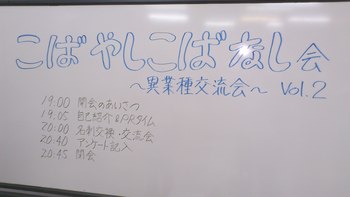 こばやしこばなし会
～異業種交流会～ Vol.2
19.00 開会のあいさつ
19.05 自己紹介&PRタイム
20.00 名刺交換・交流会
20.40 アンケート記入
20.45 閉会